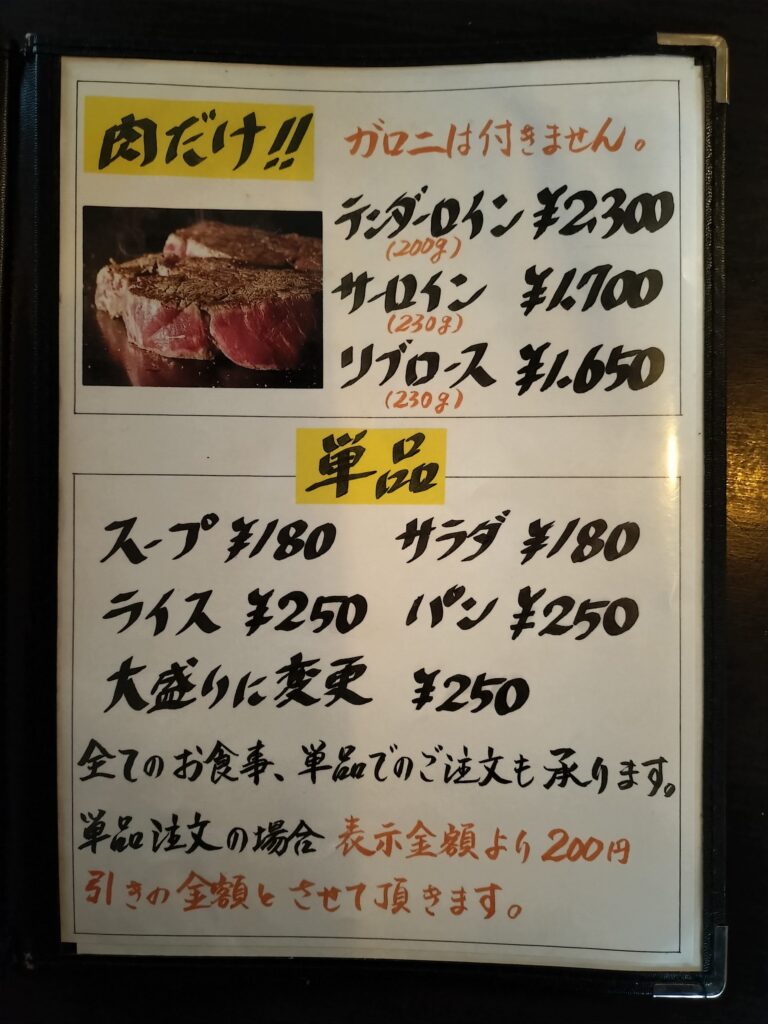 肉だけ!!
ガロニは付きません。
テンダーロイン ¥2,300
(200g)
サーロイン ¥1,700
(230g)
リブロース ¥1,650
(230g)
単品
スープ ¥180 サラダ ¥180
ライス ¥250 パン ¥250
大盛りに変更 ¥250
全てのお食事、単品でのご注文も承ります。
単品注文の場合 表示金額より200円
引きの金額とさせて頂きます。